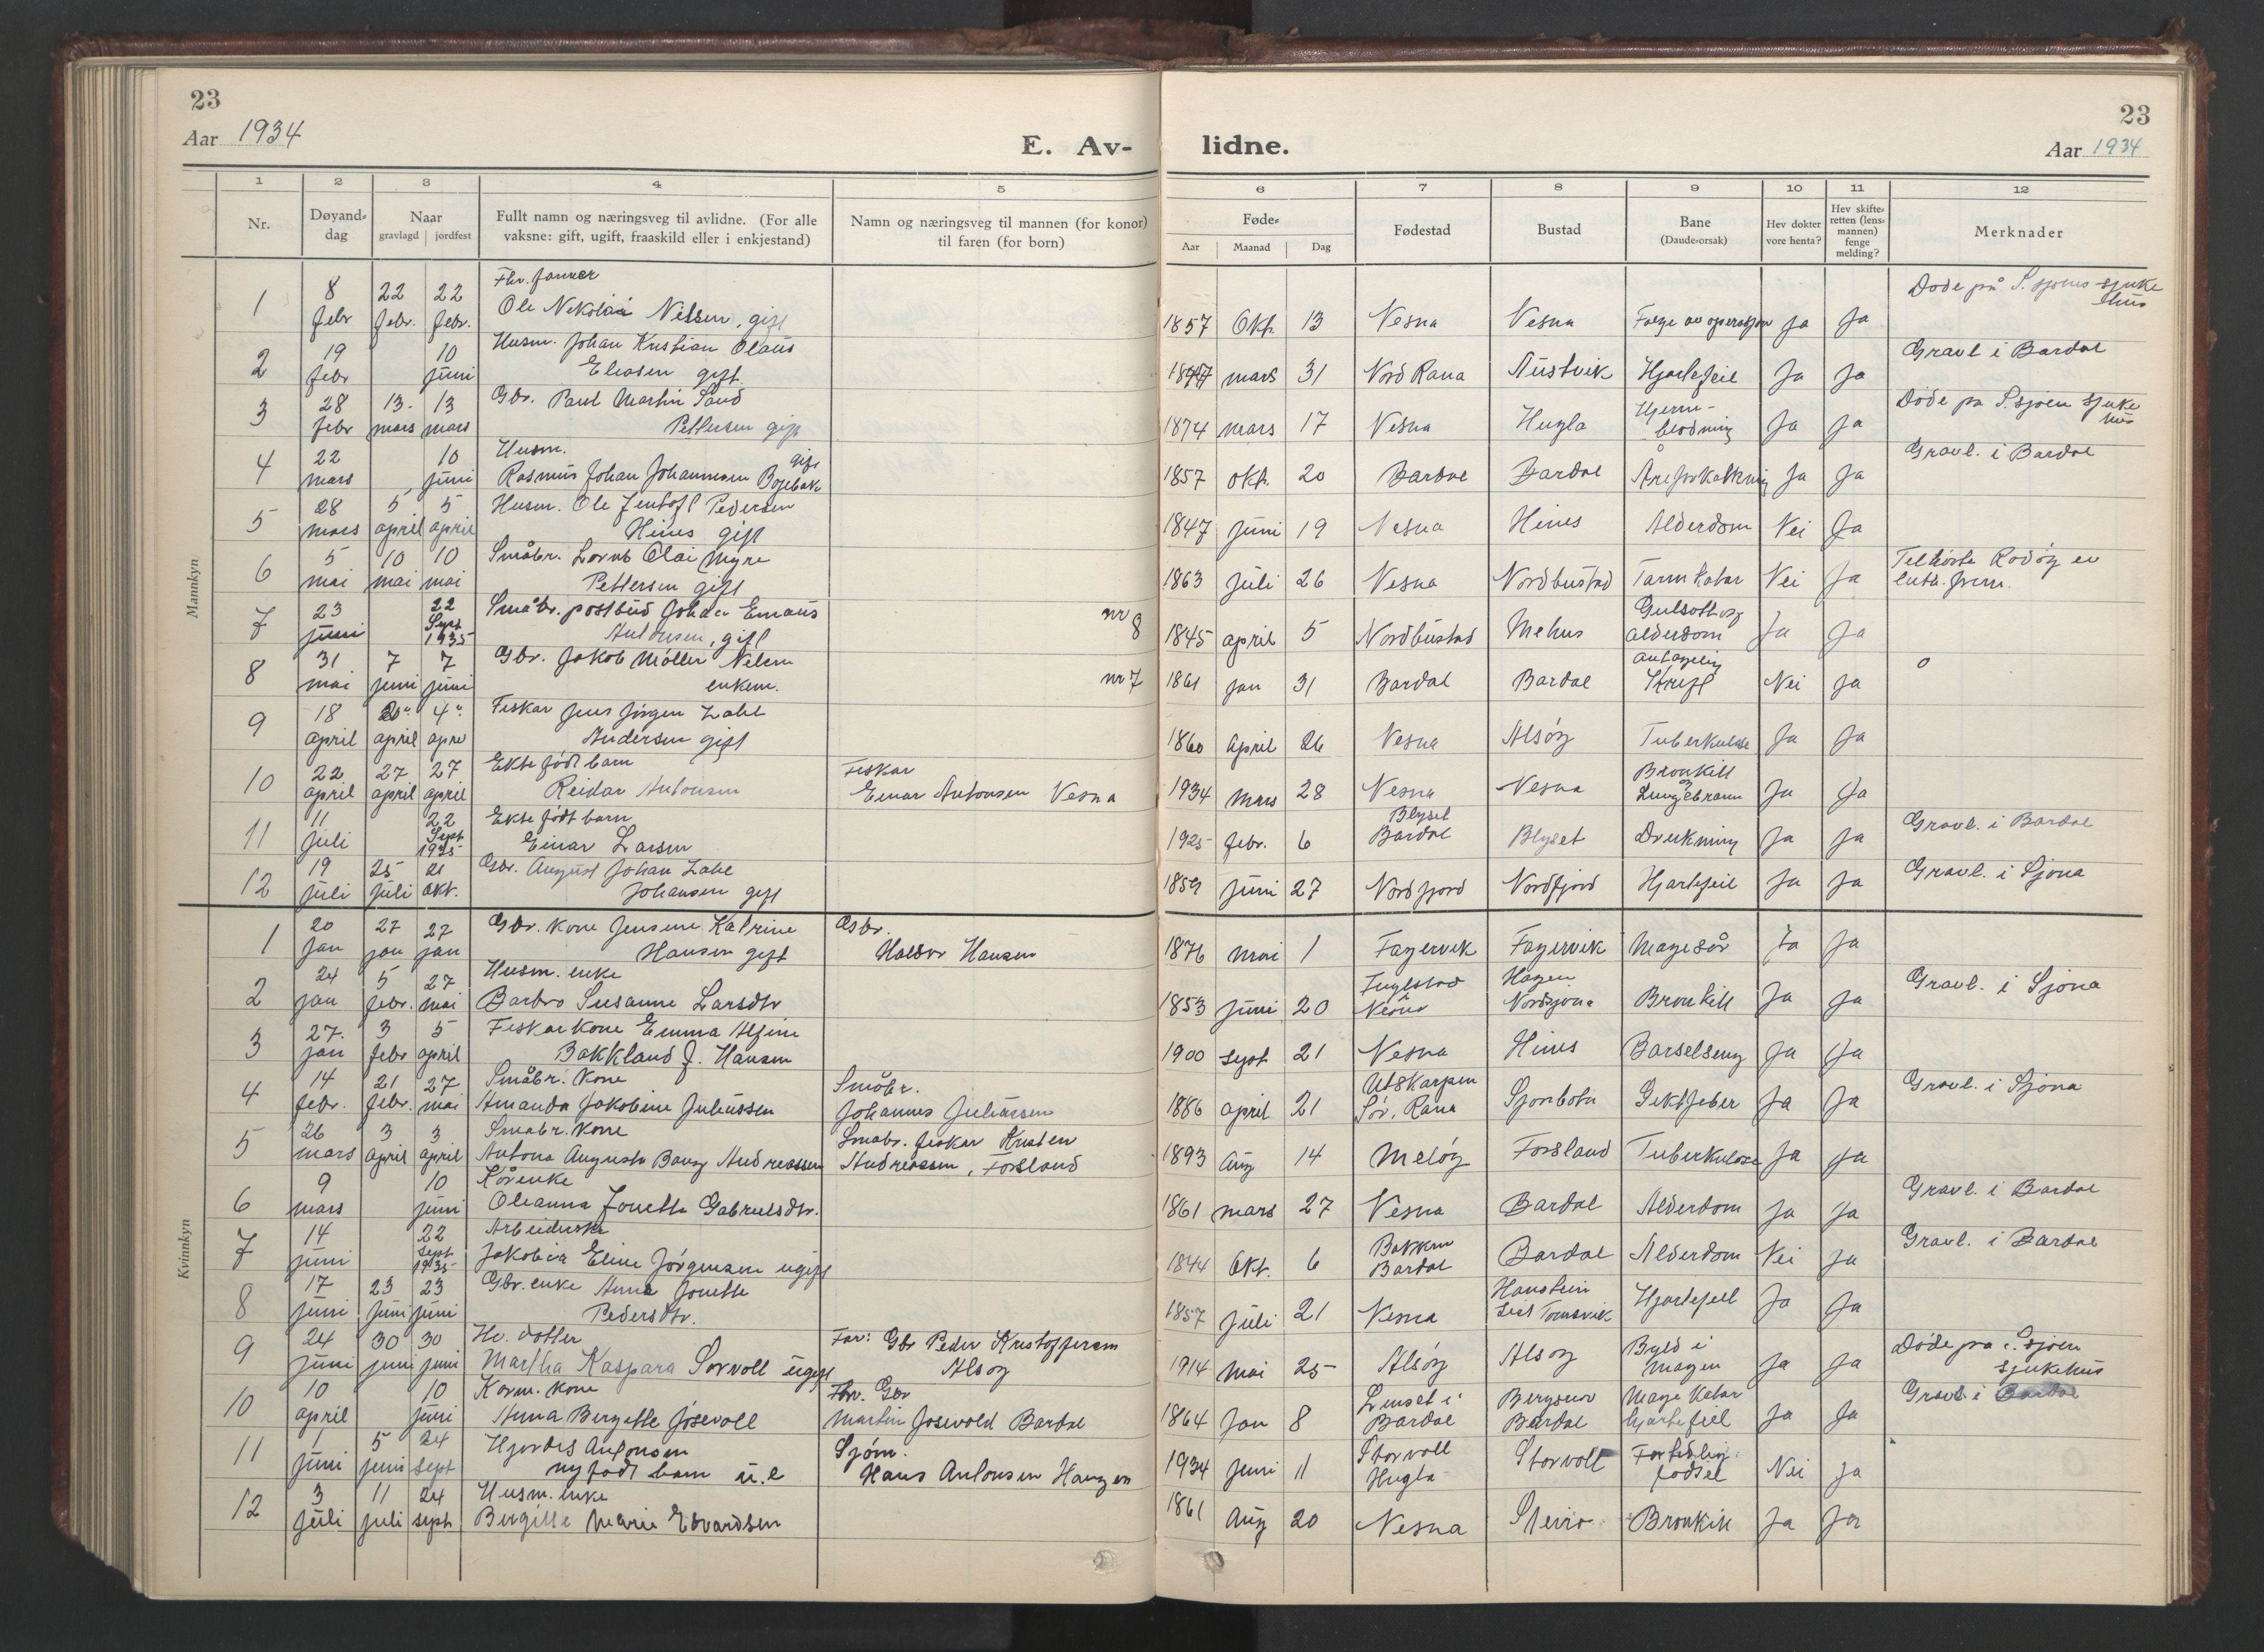 23
Aar 1934
E. Av-
1 2 3 4 5
Nr.
Døyand-
dag
Naar
gravlagd | jordfest
Fullt namn og næringsveg til avlidne. (For alle
vaksne: gift, ugift, fraaskild eller i enkjestand)
Namn og næringsveg til mannen (for konor)
til faren (for born)
Mannkyn
1 8 febr 22 febr. 22 febr.
Ole Nikolai Nilsen, gift
2 19 febr 10 juni Husm. Johan Kristian Olaus
Eliasen gift.
3 28 febr 13. mars 13 mars Gbr. Paul Martin Sand
Pettersen gift
4 22 mars 10 juni Husm. gift
Rasmus Johan Johannesen
5 28 mars 5 april 5 april Husm. Ole Zentoft Pedersen
Hines gift
6 5 mai 10 mai 10 mai Småbr. Olai Myre
Pettersen gift
7 23 juni 22 Sept 1935 Småbr. postbud Johan Emaus
Antonsen, gift
nr 8
8 31 mai 7 juni 7 juni Gbr. Jakob Møller Nilsen
enkem.
nr 7
9 18 april april 4 Fiskar Jens Jørgen Zahl
Andersen gift
10 22 april 27 april 27 april Ekte født barn
Reidar Antonsen
Fiskar
Einar Antonsen Nesna
11 11 juli 22 Sept 1935 Ekte født barn
Einar Larsen
12 19 juli 25 juli 21 okt. Gbr. August Johan Zahl
Johansen gift
Kvinnkyn
1 20 jan 27 jan 27 jan Gbr. kone Jensine Katrine
Hansen gift
Gbr.
Halvor Hansen
2 24 jan 5 febr. 27 mai Husm. enke
Barbro Susanne Larsdtr
3 27. jan 3 febr 5 april Fiskarkone Emma Alfine
Bakkland f. Hansen
4 14 febr. 21 febr. 27 mai Småbr. kone
Amanda Jakobine Juliussen
Småbr.
Johannes Juliussen
5 26 mars 3 april 3 april Småbr. kone
Antona Augusta Bang Andreassen
Småbr. fiskar Kristen
Andreassen, Forsland
6 9 mars 10 juni Kårenke
Oleanna Jonette Gabrielsdtr.
7 14 juni 22 sept 1935
Jakobia Eline Jørgensen ugift
8 17 juni 23 juni 23 juni Gbr. enke Anna Jonette
Pedersdtr.
9 24 juni 30 juni 30 juni Hv. dotter
Martha Kaspara Sorvoll ugift
Far: Gbr Peder Kristoffersen
Alsøy
10 10 april 10 juni Kårm. kone
Anna Bergette Jósevoll
Fhv. Gbr
Martin Josevold Bardal
11 1 juni 5 juni 24 sept Hjørdis Antonsen
nyfødt barn u.e
Sjøm.
Hans Antonsen Haugen
12 3 juli 11 juli 24 sept Husm. enke
Birgitte Marie Edvardsen
23
lidne.
Aar 1934
6 7 8 9 10 11 12
Føde-
Aar Maanad Dag
Fødestad
Bustad
Bane
(Daude-orsak)
Hev dokter
vore henta?
Hev skifte-
retten (lens-
mannen)
fenge
melding?
Merknader
1857 Okt. 13 Nesna Nesna Følge av operasjon Ja Ja Døde på S. sjøens sjuke
hus
mars 31 Nord Rana Austvik Hjartefeil Ja Ja Gravl i Bardal
1874 mars 17 Nesna Hugla Hjerne-
blødning Ja Ja Døde på S.sjøen sjuke
hus
1857 okt. 20 Bardal Bardal Åreforkalkning Ja Ja Gravl. i Bardal
1847 juni 19 Nesna Hines Alderdom Nei Ja
1863 juli 26 Nesna Nordbustad Tarmkatar Nei Ja Tilhørte Rødøy ev
luth. frim.
1845 april 5 Nordbustad Mehus Gulsott og
alderdom Ja Ja
1861 jan 31 Bardal Bardal antagelig
Kreft Nei Ja
1860 April 26 Nesna Alsøy Tuberkulose Ja Ja
1934 Mars 28 Nesna Nesna Bronkitt
Lungebrann Ja Ja
1925 febr. 6 Blyset
Bardal Blyset Drukning Ja Ja Gravl. i Bardal
1859 juni 27 Nordfjord Nordfjord Hjartefeil Ja Ja Gravl. i Sjona
1876 mai 1 Fagervik Fagervik Magesår Ja Ja
1853 juni 20 Fuglstad
Nesna Hagen
Nordsjona Bronkitt Ja Ja Gravl. i Sjona
1900 sept 21 Nesna Hines Barselseng Ja Ja
1886 april 21 Utskarpen
Sør. Rana Sjonbotn Giktfeber Ja Ja Gravl. i Sjona
1893 Aug 14 Meløy Forsland Tuberkulose Ja Ja
1861 mars 27 Nesna Bardal Alderdom Ja Ja Gravl. i Bardal
1844 Okt. 6 Bakken
Bardal Bardal Alderdom Nei Ja Gravl. i Bardal
1857 juli 21 Nesna Hjartefeil Ja Ja
1914 mai 25 Alsøy Alsøy Byld i
magen Ja Ja Døde på S.sjøen
sjukehus
1864 Jan 8 Leuset i
Bardal Bardal Mage Katar
hjartefeil Ja Ja Gravl. i Bardal
1934 juni 11 Storvoll
Hugla Storvoll Fortidlig
fødsel Nei Ja
1861 Aug 20 Nesna Bronkitt Ja Ja